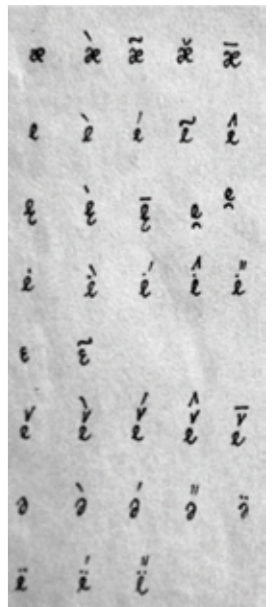 æ æ̀ æ̃ æ̆ ǣ
e è é ẽ ê
ę ę̀ ę̄ e̯
ė ė̀ ė́ ė̂ ė̋
ε ε̃
ě ě̀ ě́ ě̂ ě̄
ə ə̀ ə́ ə̋ ə̈
ë ë́ ë̋